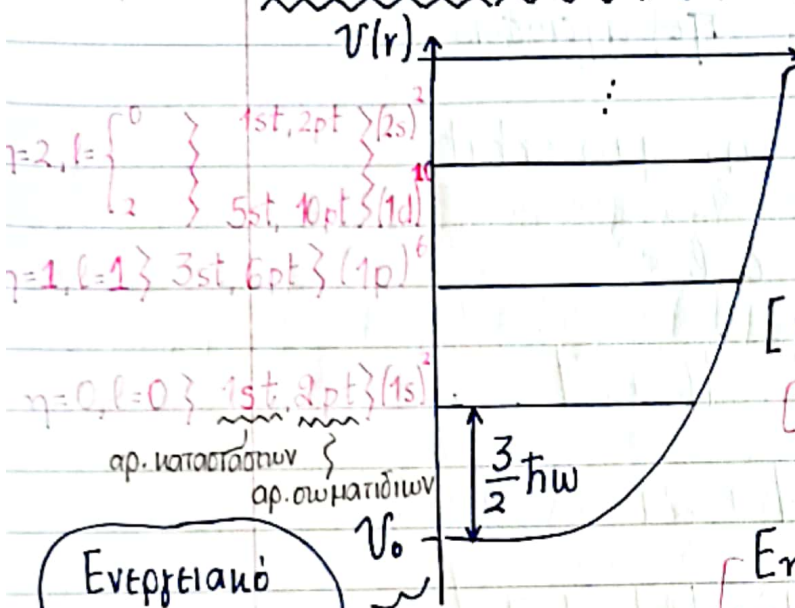 V(r)
η=2, l= { 0 } 1st, 2pt } (2s)²
2 } 5st, 10pt } (1d)¹⁰
η=1, l=1 } 3st, 6pt } (1p)⁶
η=0, l=0 } 1st, 2pt } (1s)²
αρ. καταστάσεων
αρ. σωματιδίων
3/2 ħω
V₀
Ενεργειακό
[